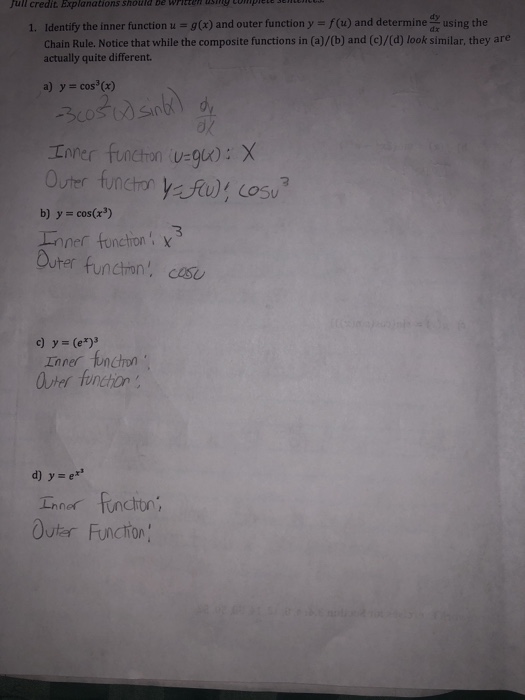 full credit. Explanations should be written using complete sentences.
1. Identify the inner function u = g(x) and outer function y = f(u) and determine dy/dx using the
Chain Rule. Notice that while the composite functions in (a)/(b) and (c)/(d) look similar, they are
actually quite different.
a) y = cos³(x)
-3cos²(x) sin(x) dy/dx
Inner function (u=g(x): X
Outer function y=f(u): cosu³
b) y = cos(x³)
Inner function: x³
Outer function: cosu
c) y = (eˣ)³
Inner function:
Outer function:
d) y = e^x³
Inner function:
Outer Function: